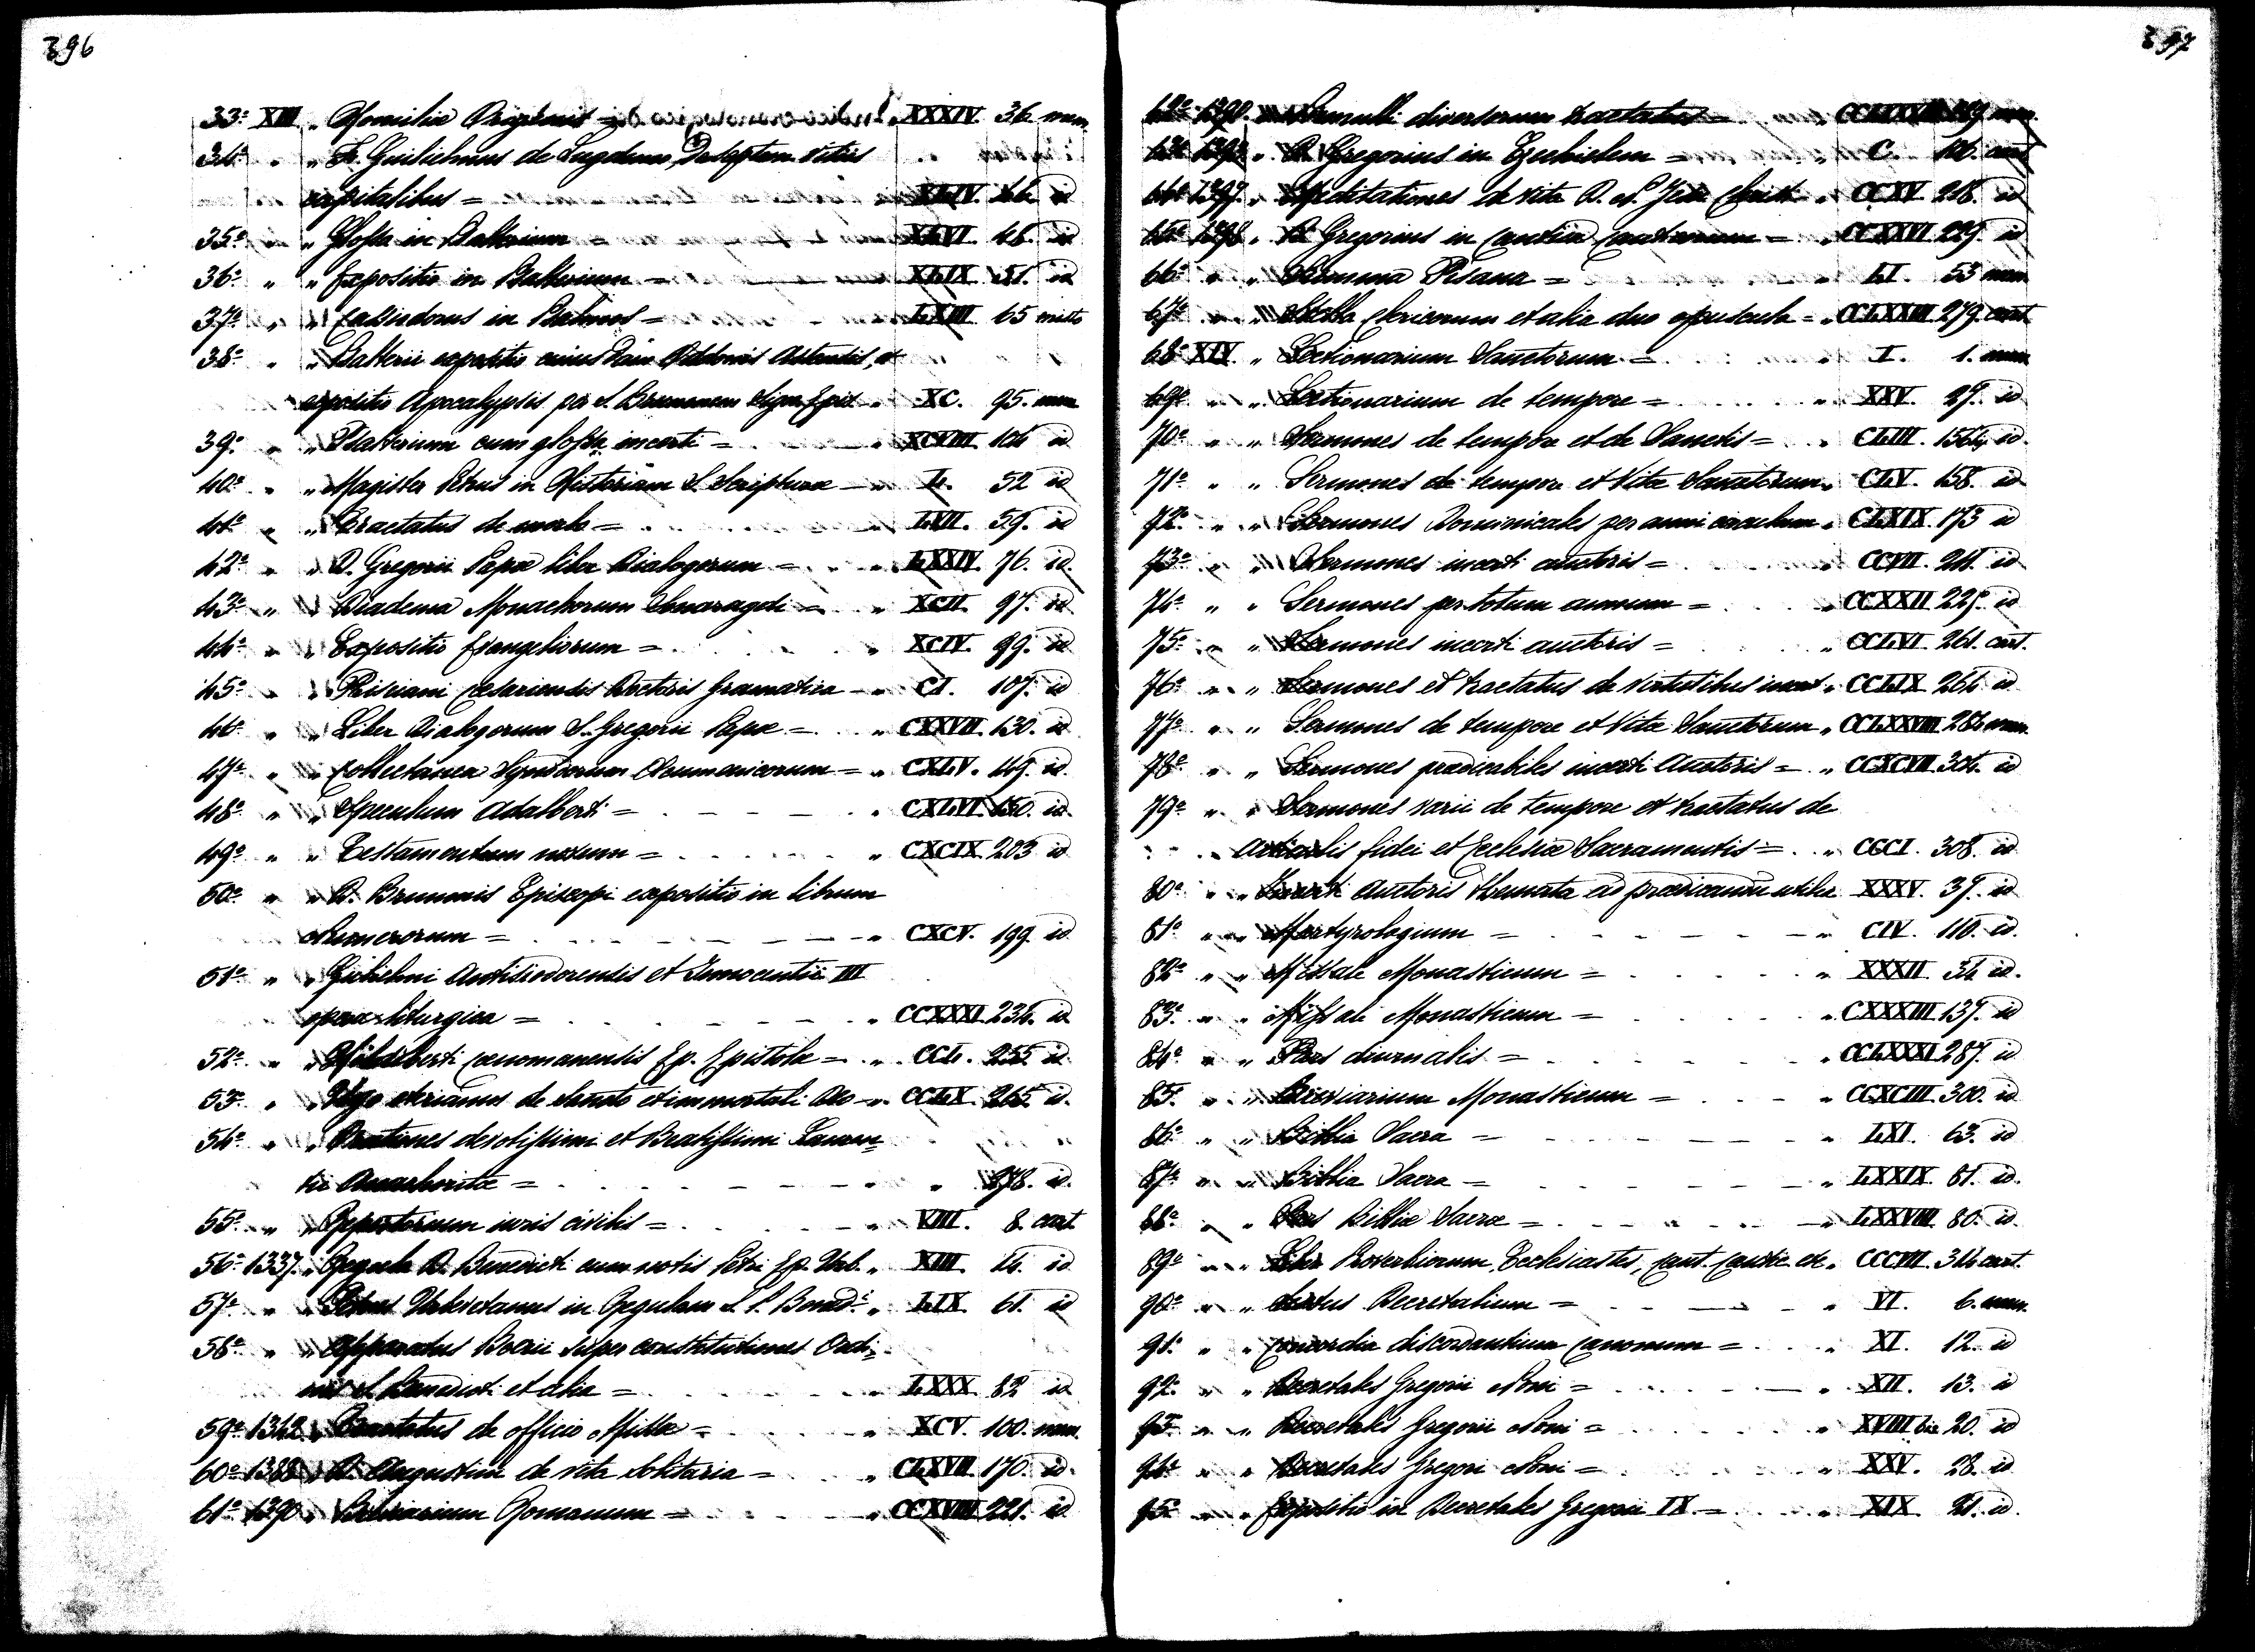 396
33.º XIII „ Homiliæ Origenis = XXXIV 36 mem.
34.º „ „ Fr. Guilielmus de Lugduno, De septem vitiis
capitalibus = XLIV. 46. id
35.º „ „ Glossa in Psalterium = XLVI 48. id
36.º „ „ Expositio in Psalterium = XLIX 51. id
37.º „ „ Cassiodorus in Psalmos = LXIII 65 misto
38.º „ „ Psalterii expositio cuius Dam Oddonis Astensis, et
expositio Apocalypsis per S. Brunonem Sign. Epis. „ XC. 95. mem
39.º „ „ Psalterium cum glossa incerti = XCVIII 104 id
40.º „ „ Magister Petrus in Historiam S. Scripturæ = L. 52 id
41.º „ „ Tractatus de morbo = LVII. 59. id
42.º „ „ D. Gregorii Papæ liber Dialogorum = LXXIV 76. id.
43.º „ „ Diadema Monachorum Smaragdi = „ XCII 97. id
44.º „ „ Expositio Evangeliorum = „ XCIV. 99. id
45.º „ „ Prisciani Cesariensis Doctoris Gramatica = „ CI. 107. id
46.º „ „ Liber Dialogorum S. Gregorii Papæ = „ CXXVII. 130. id
47.º „ „ Collectanea Synodorum Oecumenicorum = „ CXLV. 149. id
48.º „ „ Speculum Adalberti = „ CXLVI 150. id.
49.º „ „ Testamentum novum = „ CXCIX 203 id
50.º „ „ D. Brunonis Episcopi expositio in librum
Numerorum = „ CXCV. 199. id
51.º „ „ Gulielmi Antisiodorensis et Innocentii III
opera liturgica = „ CCXXXI 234. id
52.º „ „ Hildeberti Cenomanensis Ep. Epistolæ = „ CCL. 255 id
53.º „ „ Ugo eterianus de sancto et immortali Deo „ CCLX. 265 id.
54.º „ „ Orationes devotissimi et Beatissimi Lauren=
tii Anachoritæ = „ 278. id.
55.º „ „ Repertorium iuris civilis = „ VIII. 8. cart
56.º 1337. „ Regula D. Benedicti cum notis Petri Ep. Urb. „ XIII. 14. id
57.º „ „ Petrus Urbevetanus in Regulam S. P. Bened.ti „ LIX 61. id
58.º „ „ Apparatus Boerii super constitutiones Ordi=
nis S. Benedicti et alia = „ LXXX 82 id
59.º 1342 „ Tractatus de officio Missæ = „ XCV. 100. mem.
60.º 1388 „ D. Augustini de vita solitaria = „ CLXVII. 170. id.
61.º 1390 „ Breviarium Romanum = „ CCXVIII 221. id
397
62.º 1390. „ diversorum tractatus = „ CCLXXXIII 289. mem.
63.º „ D. Gregorius in Ezechielem = „ C. 106. cart
64.º 1397. „ Meditationes de vita D. N. Jesu Christi „ CCXV 218. id
65.º 1398 „ D. Gregorius in Cantica Canticorum = „ CCXXVI 229. id
66.º „ „ Summa Pisana = „ LI. 53 mem
67.º „ „ Stella Clericorum et alia duo opuscula = „ CCLXXIII 279. cart
68.º XIV. „ Lectionarium Sanctorum = „ I. 1. mem
69.º „ „ Lectionarium de tempore = „ XXV. 27. id
70.º „ „ Sermones de tempore et de Sanctis = „ CLIII. 156. id
71.º „ „ Sermones de tempore et Vita Sanctorum „ CLV. 158. id
72.º „ „ Sermones Dominicales per anni circulum „ CLXIX. 173 id
73.º „ „ Sermones incerti auctoris = „ CCVII. 211. id
74.º „ „ Sermones per totum annum = „ CCXXII 225. id
75.º „ „ Sermones incerti auctoris = „ CCLVI 261. cart.
76.º „ „ Sermones et tractatus de virtutibus incert „ CCLIX 264 id
77.º „ „ Sermones de tempore et Vita Sanctorum „ CCLXXVIII 284 mem.
78.º „ „ Sermones prædicabiles incerti Auctoris = „ CCXCVII 304. id
79.º „ „ Sermones varii de tempore et tractatus de
articulis fidei et Ecclesiæ Sacramentis = „ CCCI. 308. id
80.º „ „ Incerti Auctoris themata ad prædicandum utilia XXXV. 37. id
81.º „ „ Martyrologium = „ CIV. 110. id.
82.º „ „ Missale Monasticum = „ XXXII 34 id.
83.º „ „ Missale Monasticum = „ CXXXIII 137. id
84.º „ „ Pars diurnalis = „ CCLXXXI 287. id
85.º „ „ Breviarium Monasticum = „ CCXCIII 300. id
86.º „ „ Biblia Sacra = „ LXI. 63. id
87.º „ „ Biblia Sacra = „ LXXIX. 81. id.
88.º „ „ Pars Bibliæ Sacræ = „ LXXVIII. 80. id
89.º „ „ Liber Proverbiorum, Ecclesiastes, Cant. Cantic. etc. CCCVII. 314 cart.
90.º „ „ Sextus Decretalium = „ VI. 6. mem.
91.º „ „ Concordia discordantium Canonum = „ XI. 12. id
92.º „ „ Decretales Gregorii Noni = „ XII. 13. id
93.º „ „ Decretales Gregorii Noni = „ XVIII bis 20. id
94.º „ „ Decretales Gregorii Noni = „ XXV. 28. id
95.º „ „ Expositio in Decretales Gregorii IX = „ XIX 21. id.